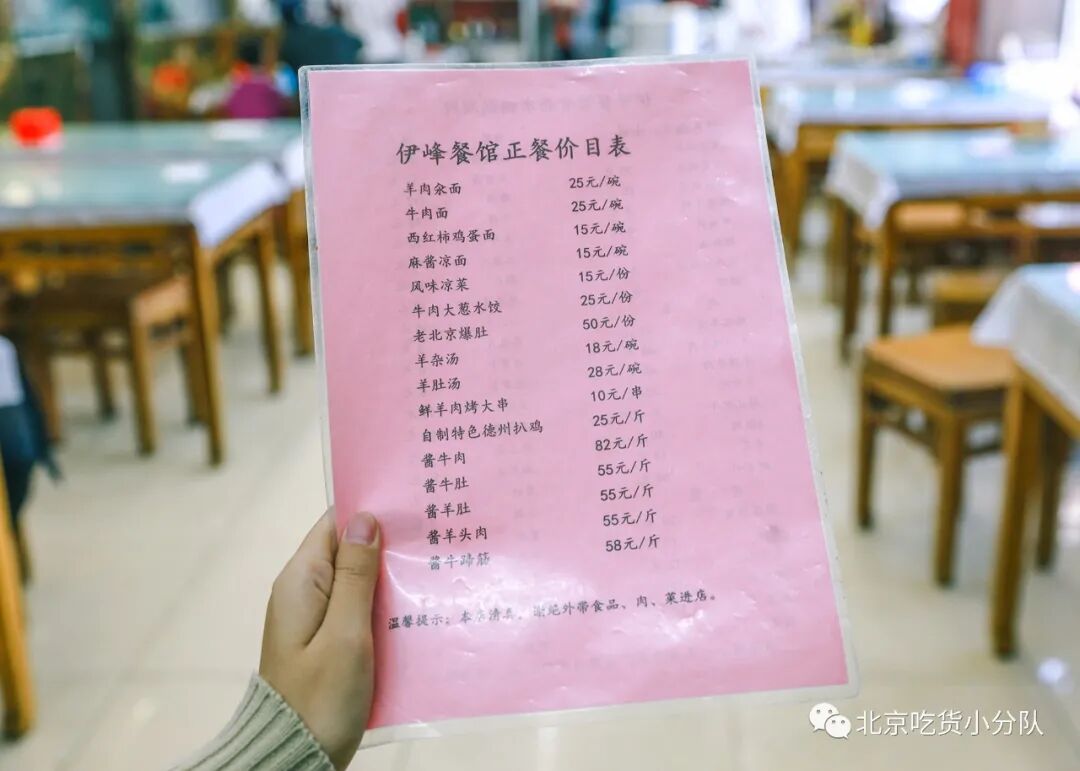 伊峰餐馆正餐价目表
羊肉汆面 25元/碗
牛肉面 25元/碗
西红柿鸡蛋面 15元/碗
麻酱凉面 15元/碗
风味凉菜 15元/份
牛肉大葱水饺 25元/份
老北京爆肚 50元/份
羊杂汤 18元/碗
羊肚汤 28元/碗
鲜羊肉烤大串 10元/串
自制特色德州扒鸡 25元/斤
酱牛肉 82元/斤
酱牛肚 55元/斤
酱羊肚 55元/斤
酱羊头肉 55元/斤
酱牛蹄筋 58元/斤
温馨提示：本店清真，谢绝外带食品、肉、菜进店。
北京吃货小分队